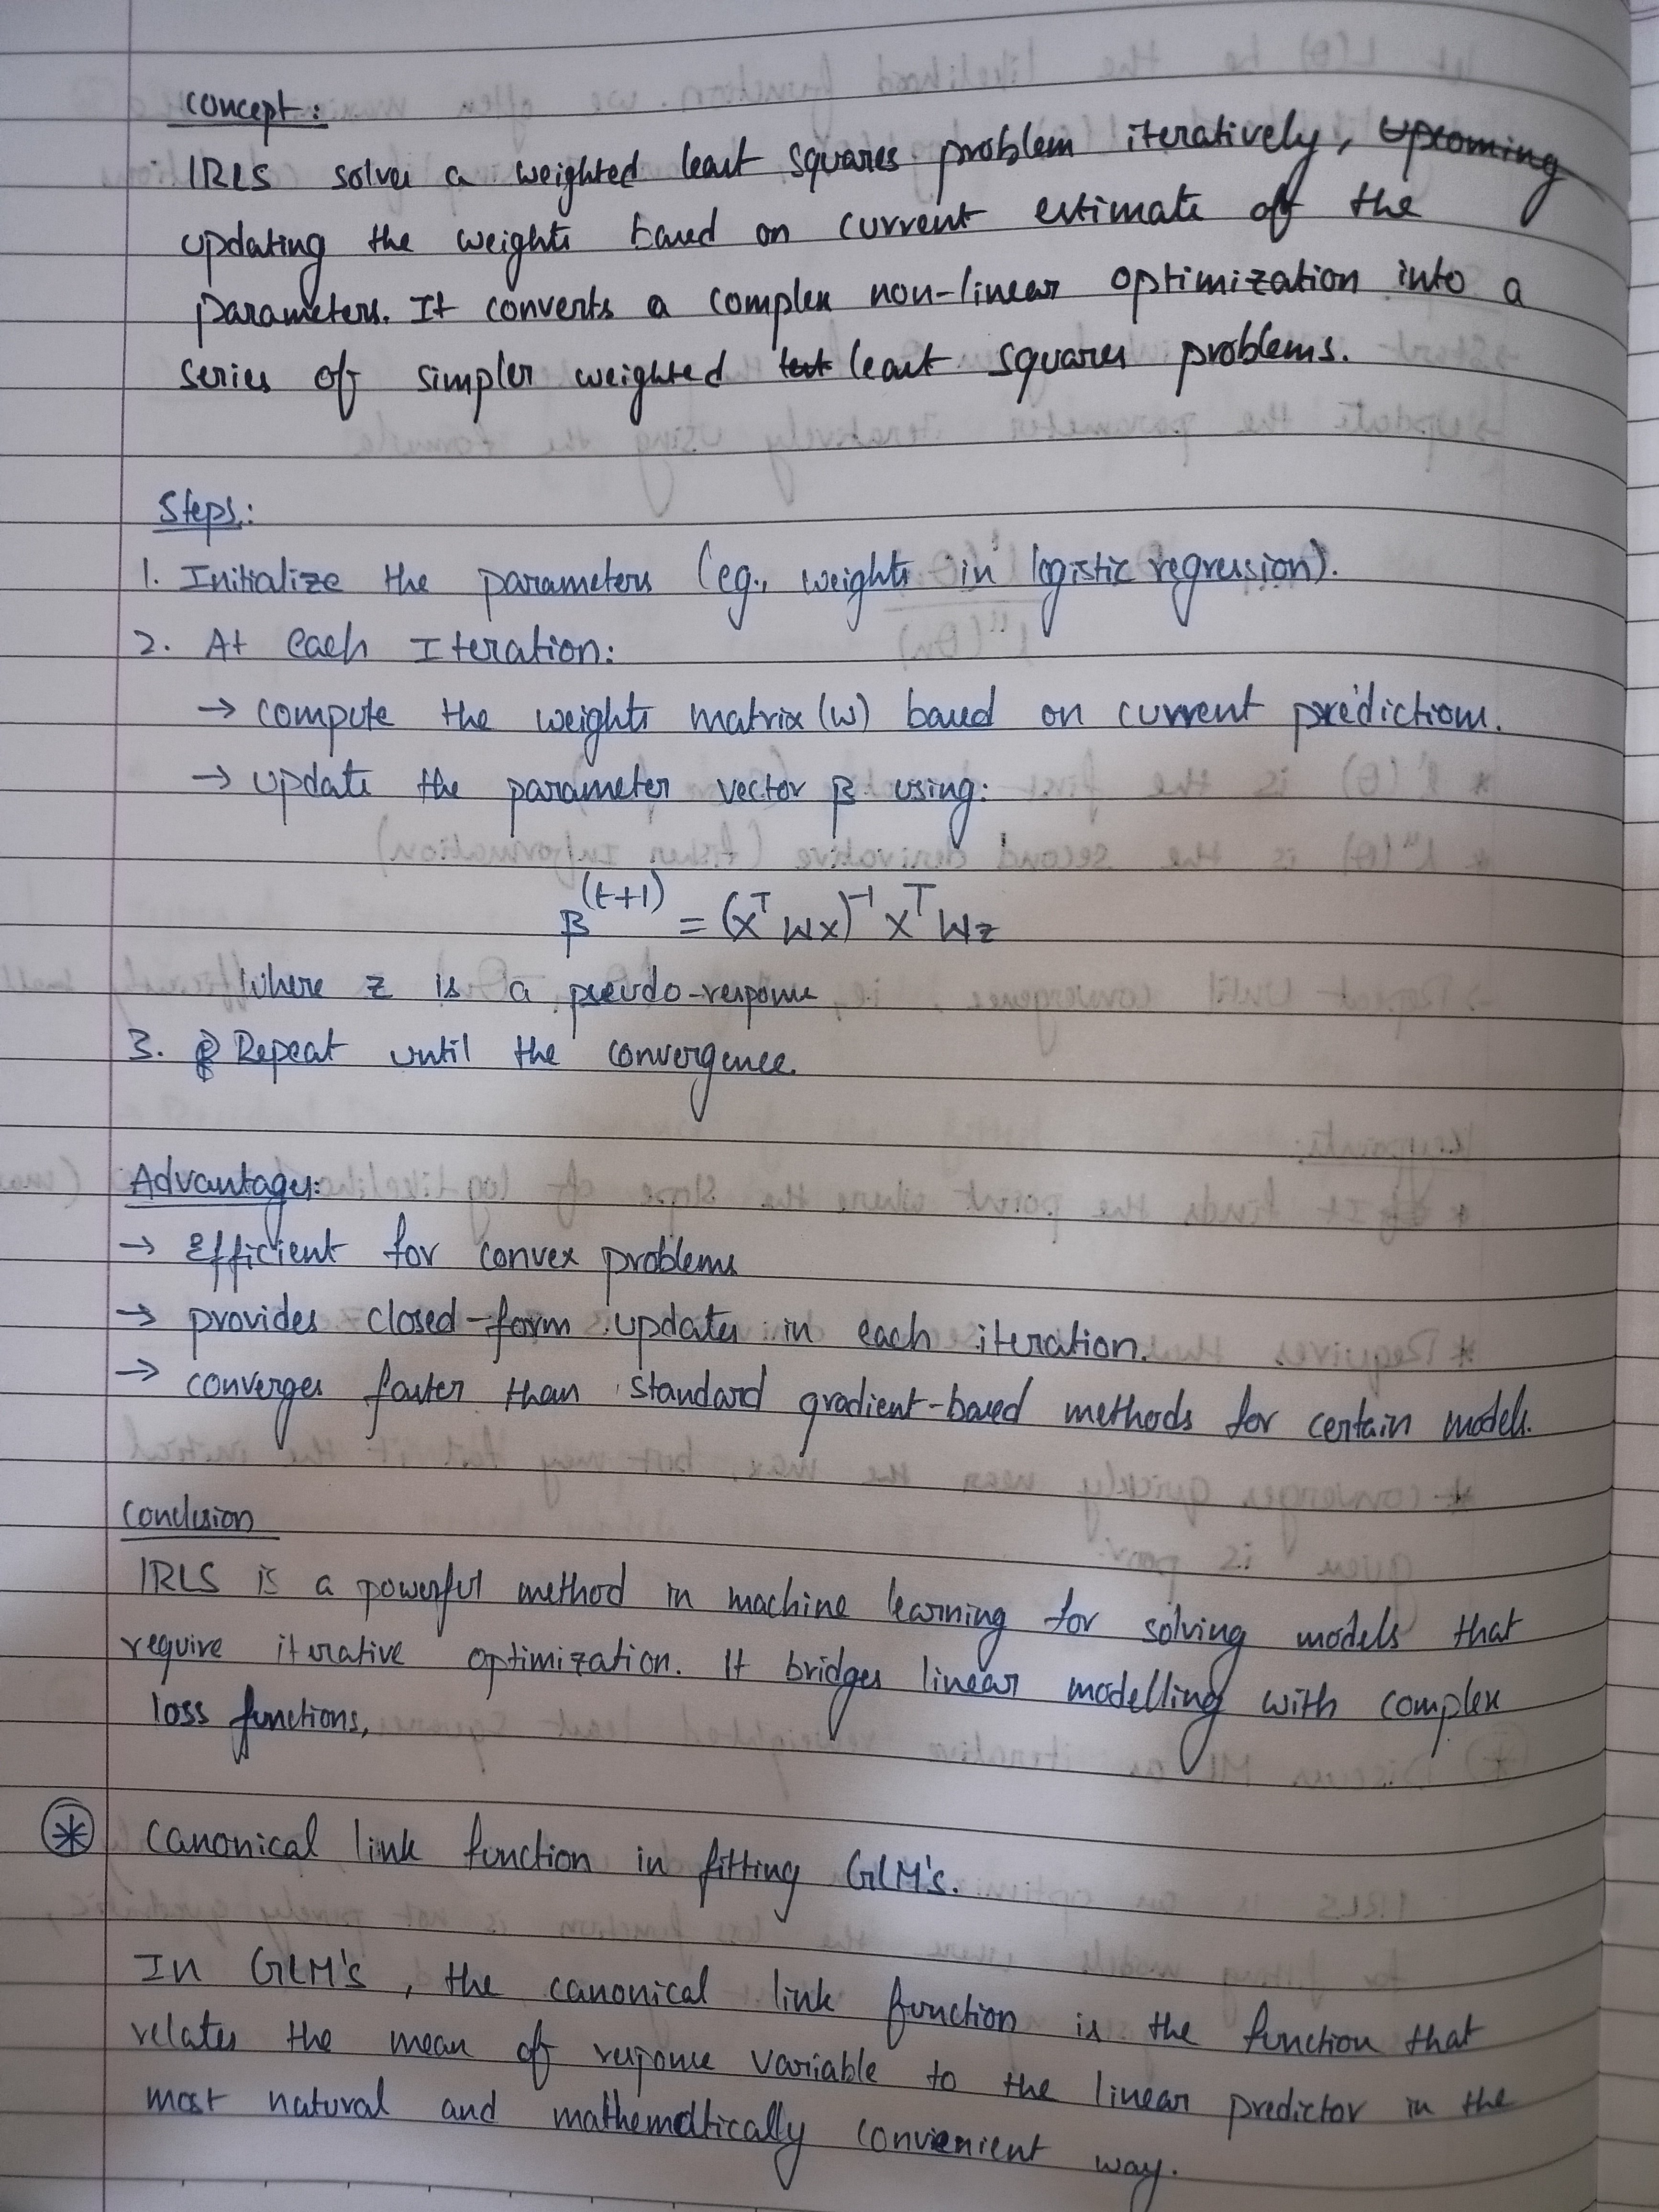 Concept:
IRLS solves a weighted least squares problem iteratively, Upcoming
updating the weights based on current estimate of the
parameters. It converts a complex non-linear optimization into a
series of simpler weighted least squares problems.
Steps:
1. Initialize the parameters (eg., weights in logistic regression).
2. At each Iteration:
→ compute the weights matrix (W) based on current predictions.
→ update the parameter vector β using:
β^(t+1) = (X^T W X)^-1 X^T W z
Where z is a pseudo-response
3. Repeat until the convergence.
Advantages:
→ Efficient for convex problems
→ provides closed-form updates in each iteration.
→ converges faster than standard gradient-based methods for certain models.
Conclusion
IRLS is a powerful method in machine learning for solving models that
require iterative optimization. It bridges linear modelling with complex
loss functions,
* Canonical link function in fitting GLM's.
In GLM's, the canonical link function is the function that
relates the mean of response variable to the linear predictor in the
most natural and mathematically convienient way.